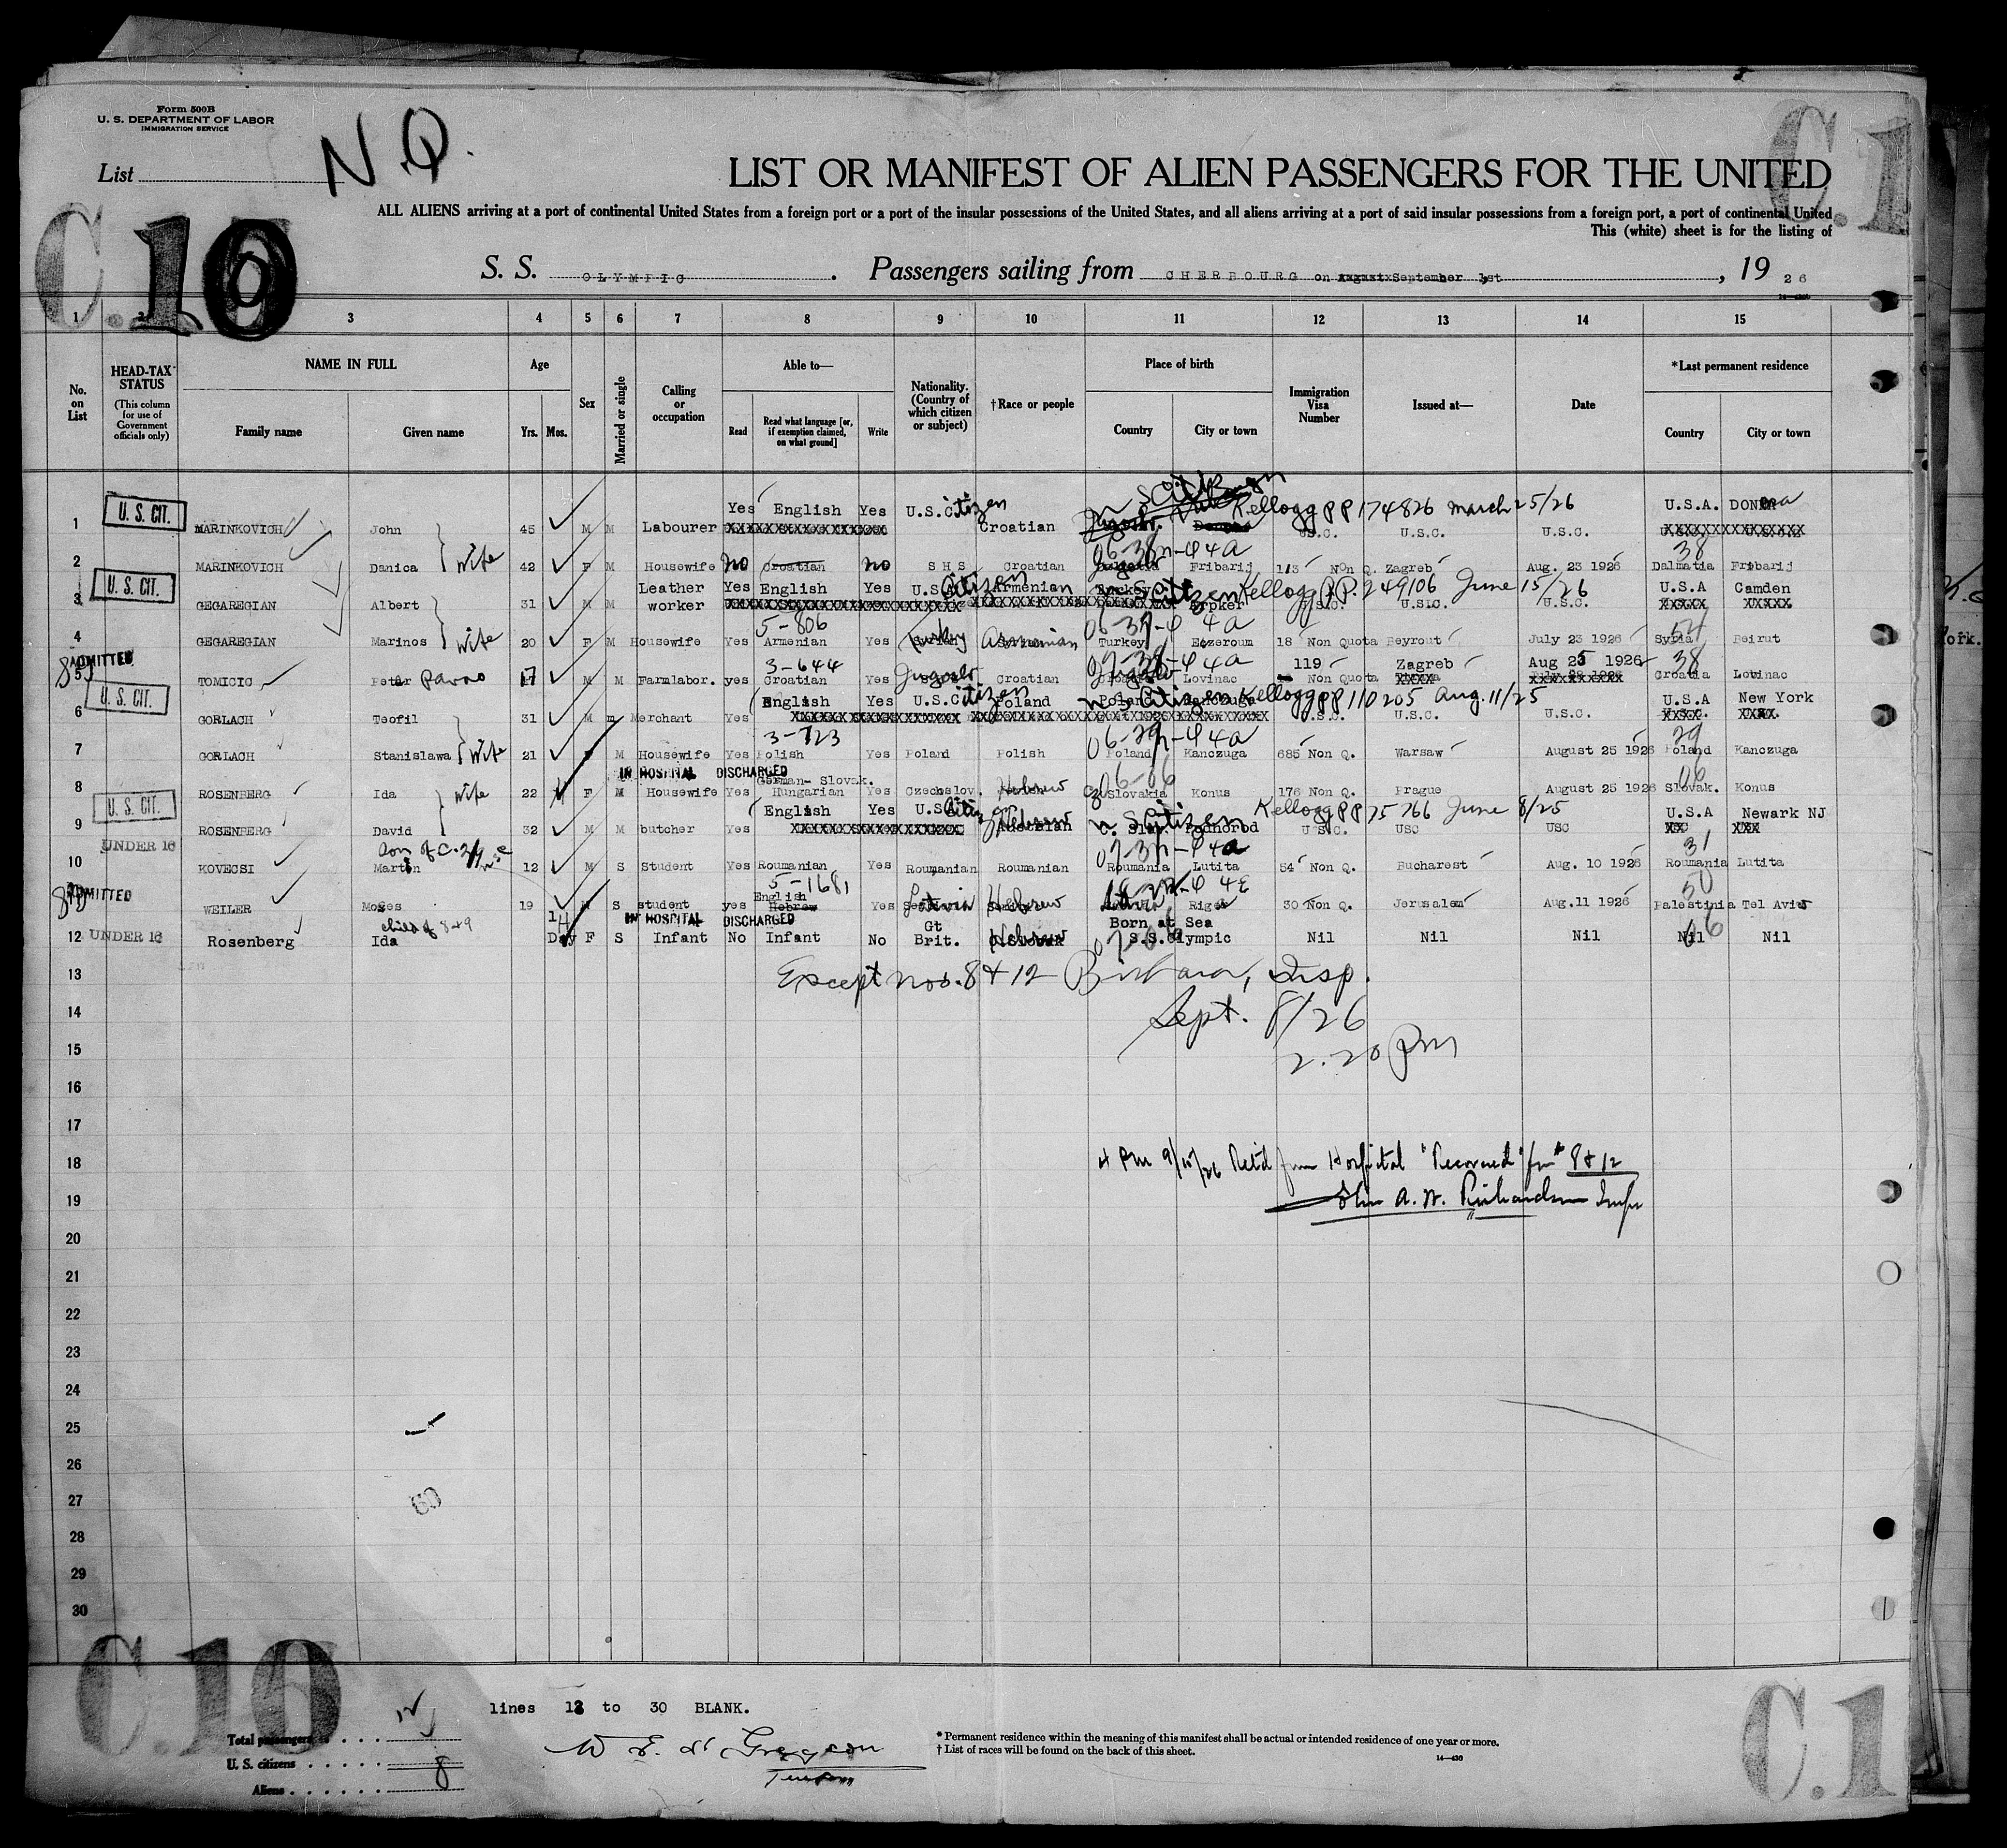 Form 500B
U. S. DEPARTMENT OF LABOR
IMMIGRATION SERVICE
N Q.
List
C.10
C.1
LIST OR MANIFEST OF ALIEN PASSENGERS FOR THE UNITED
ALL ALIENS arriving at a port of continental United States from a foreign port or a port of the insular possessions of the United States, and all aliens arriving at a port of said insular possessions from a foreign port, a port of continental United
This (white) sheet is for the listing of
S. S. OLYMPIC . Passengers sailing from CHERBOURG on September 1st , 19 26
1 2 3 4 5 6 7 8 9 10 11 12 13 14 15
No. on List
HEAD-TAX STATUS (This column for use of Government officials only)
NAME IN FULL Family name Given name
Age Yrs. Mos.
Sex
Married or single
Calling or occupation
Able to— Read Read what language [or, if exemption claimed, on what ground] Write
Nationality. (Country of which citizen or subject)
†Race or people
Place of birth Country City or town
Immigration Visa Number
Issued at—
Date
*Last permanent residence Country City or town
1 U. S. CIT. MARINKOVICH John 45 M M Labourer Yes English Yes U.S. Citizen Croatian Kellogg PP 174826 March 25/26 U.S.C. U.S.C. U.S.C. U.S.A. DONORA
06-38n-44a 38
2 MARINKOVICH Danica Wife 42 F M Housewife no Croatian no S H S Croatian Fribarij 113 Non Q. Zagreb Aug. 23 1926 Dalmatia Fribarij
3 U. S. CIT. GEGAREGIAN Albert 31 M M Leather worker Yes English Yes U.S. Citizen Armenian Turkey Arpker Kellogg P.P. 249106 June 15/26 U.S.C. U.S.C. U.S.C. U.S.A Camden
5-806
4 GEGAREGIAN Marinos Wife 20 F M Housewife Yes Armenian Yes Turkey Armenian Turkey Erzeroum 18 Non Quota Beyrout July 23 1926 Syria Beirut
ADMITTED 3-644 38
5 TOMICIC Petar Pavao 17 M M Farmlabor. yes Croatian Yes Jugoslv Croatian Jugoslv Lovinac 119 Non Quota Zagreb Aug 25 1926 Croatia Lovinac
6 U. S. CIT. GORLACH Teofil 31 M m Merchant Yes English Yes U.S. Citizen Poland U S Citizen Kellogg PP 110205 Aug. 11/25 U.S.C. U.S.C. U.S.C. U.S.A New York
3-723 29
7 GORLACH Stanislawa Wife 21 F M Housewife Yes Polish Yes Poland Polish Poland Kanczuga 685 Non Q. Warsaw August 25 1926 Poland Kanczuga
IN HOSPITAL DISCHARGED
8 ROSENBERG Ida Wife 22 F M Housewife Yes German-Slovak. Hungarian Yes Czechslov. Hebrew Slovakia Konus 176 Non Q. Prague August 25 1926 Slovak. Konus
9 U. S. CIT. ROSENBERG David 32 M M butcher Yes English Yes U.S. Citizen Hebrew U S Citizen Podhorod Kellogg PP 75766 June 8/25 U S.C. USC USC U.S.A Newark NJ
UNDER 16 son of C. 31
10 KOVECSI Marton 12 M S Student Yes Roumanian Yes Roumanian Roumanian Roumania Lutita 54 Non Q. Bucharest Aug. 10 1926 Roumania Lutita
ADMITTED 5-1681 50
11 WEILER Moses 19 M S student yes English Hebrew Yes Latvia Hebrew Latvia Riga 30 Non Q. Jerusalem Aug.11 1926 Palestinia Tel Aviv
child of 8+9 IN HOSPITAL DISCHARGED
12 UNDER 16 Rosenberg Ida 1 Day F S Infant No Infant No Gt Brit. Hebrew Born at Sea S.S.Olympic Nil Nil Nil Nil Nil
13 Except nos. 8 + 12 Insp.
14 Sept. 8/26
15 2.20 PM
16
17
18 4 PM 9/10/26 Ret'd from Hospital "Recovered" for # 8 & 12
19 John A. W. Richardson Insp
20
21
22
23
24
25
26
27
28
29
30
C.10
C.1
lines 13 to 30 BLANK.
Total passengers 12
U. S. citizens
Aliens 8
* Permanent residence within the meaning of this manifest shall be actual or intended residence of one year or more.
† List of races will be found on the back of this sheet.
14—430